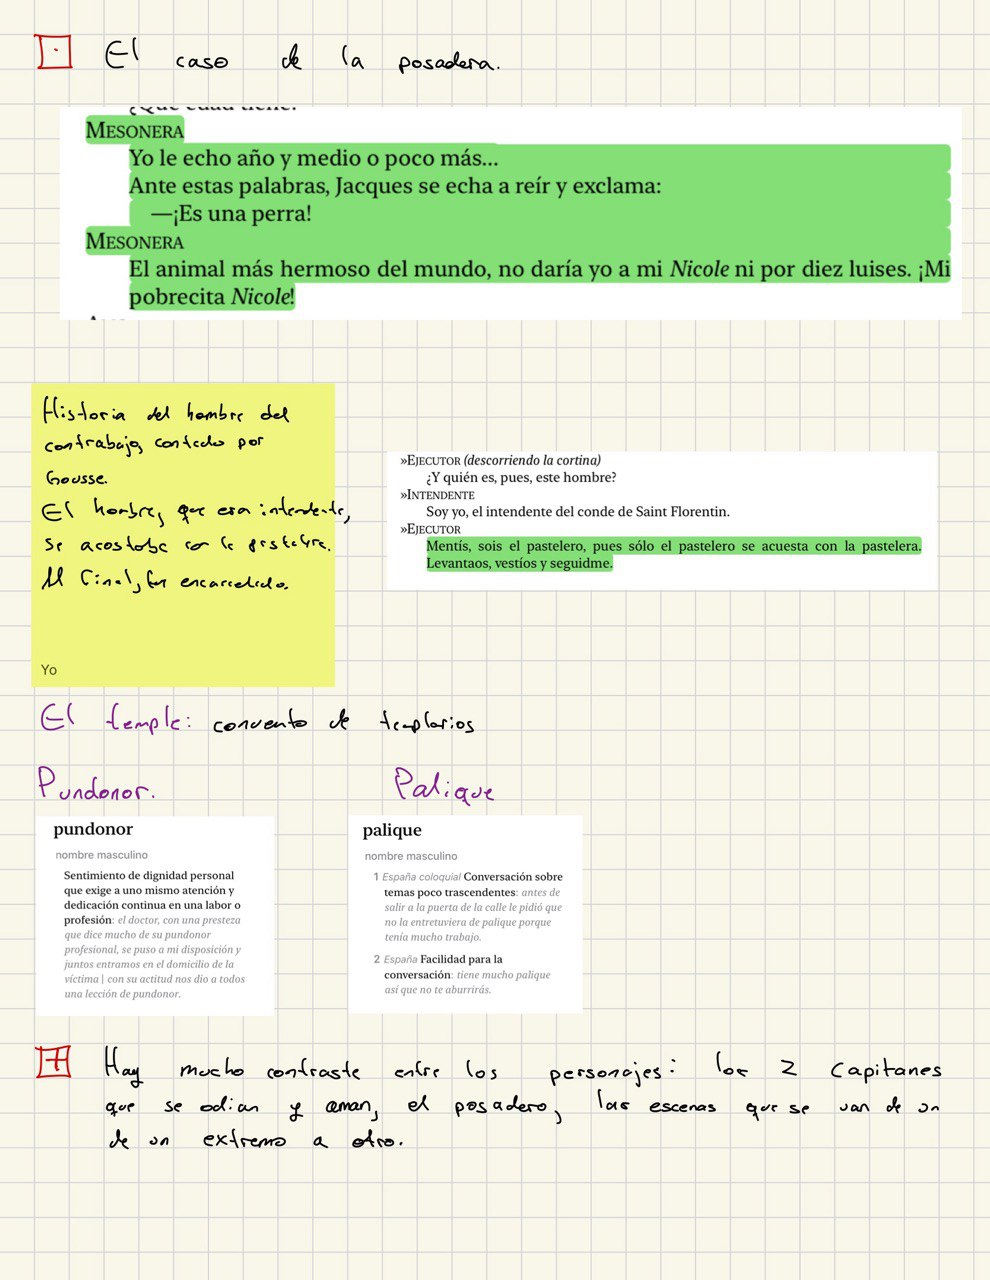 El caso de la posadera.
¿Qué edad tiene?
MESONERA
Yo le echo año y medio o poco más...
Ante estas palabras, Jacques se echa a reír y exclama:
—¡Es una perra!
MESONERA
El animal más hermoso del mundo, no daría yo a mi Nicole ni por diez luises. ¡Mi
pobrecita Nicole!
Historia del hombre del
contrabajo, contado por
Gousse.
El hombre, que era intendente,
se acostaba con la pastelera.
Al final, fue encarcelado.
Yo
»EJECUTOR (descorriendo la cortina)
¿Y quién es, pues, este hombre?
»INTENDENTE
Soy yo, el intendente del conde de Saint Florentin.
»EJECUTOR
Mentís, sois el pastelero, pues sólo el pastelero se acuesta con la pastelera.
Levantaos, vestíos y seguidme.
El temple: convento de templarios
Pundonor.
pundonor
nombre masculino
Sentimiento de dignidad personal
que exige a uno mismo atención y
dedicación continua en una labor o
profesión: el doctor, con una presteza
que dice mucho de su pundonor
profesional, se puso a mi disposición y
juntos entramos en el domicilio de la
víctima | con su actitud nos dio a todos
una lección de pundonor.
Palique
palique
nombre masculino
1 España coloquial Conversación sobre
temas poco trascendentes: antes de
salir a la puerta de la calle le pidió que
no la entretuviera de palique porque
tenía mucho trabajo.
2 España Facilidad para la
conversación: tiene mucho palique
así que no te aburrirás.
Hay mucho contraste entre los personajes: los 2 capitanes
que se odian y aman, el posadero, las escenas que se van de un
de un extremo a otro.